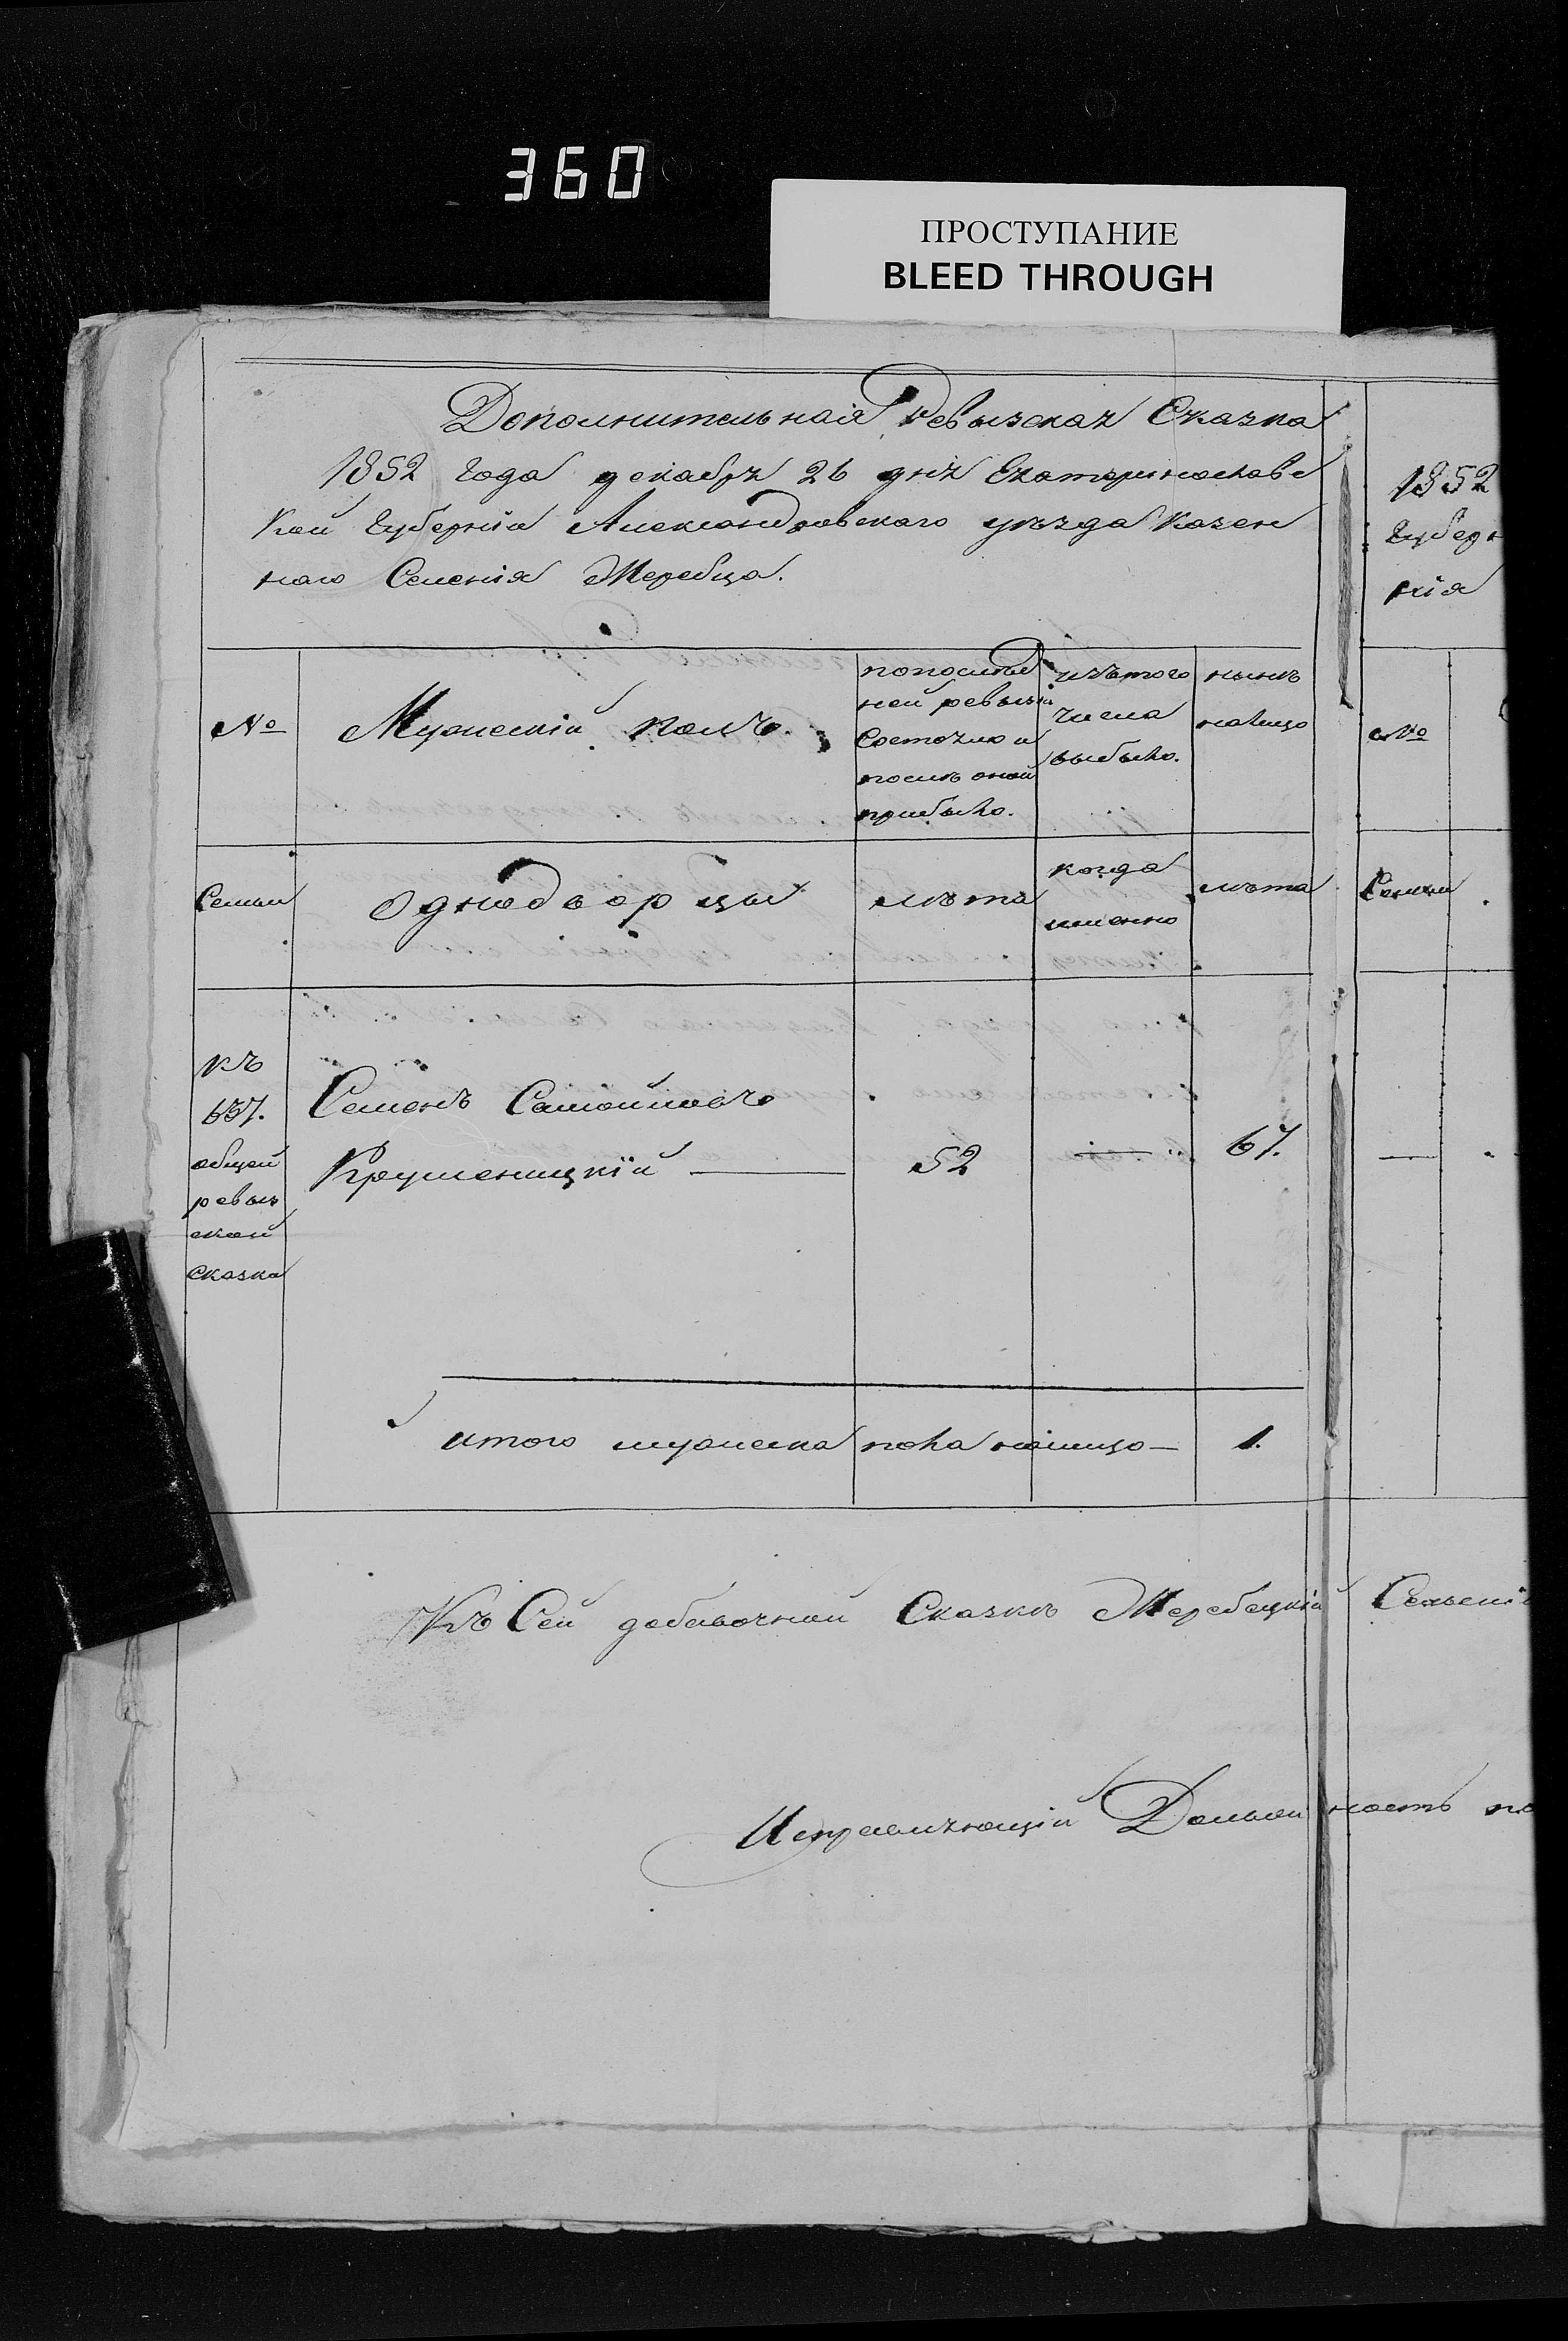 360
ПРОСТУПАНИЕ
BLEED THROUGH
Дополнительная Ревызская Сказка
1852 года декабря 26 дня Екатеринославс
кой губерніи Александровскаго уѣзда казен
наго Селенія Жеребца.
1852
губерн
нія
№
Мужескій полъ.
попослѣд
ней ревызіи
Состояло и
послѣ оной
прибыло.
изътого
числа
выбыло.
нынѣ
налицо
№
Семьи
однодворцы
лѣта
когда
именно
лѣта
Семьи
къ
637.
общей
ревыз
ской
сказки
Семенъ Самойловъ
Крушеницкій —
52
—
67.
—
итого мужеска пола налицо — 1.
Къ Сей добавочной Сказкѣ Жеребецкій Сельскій
Исправляющій Должность по